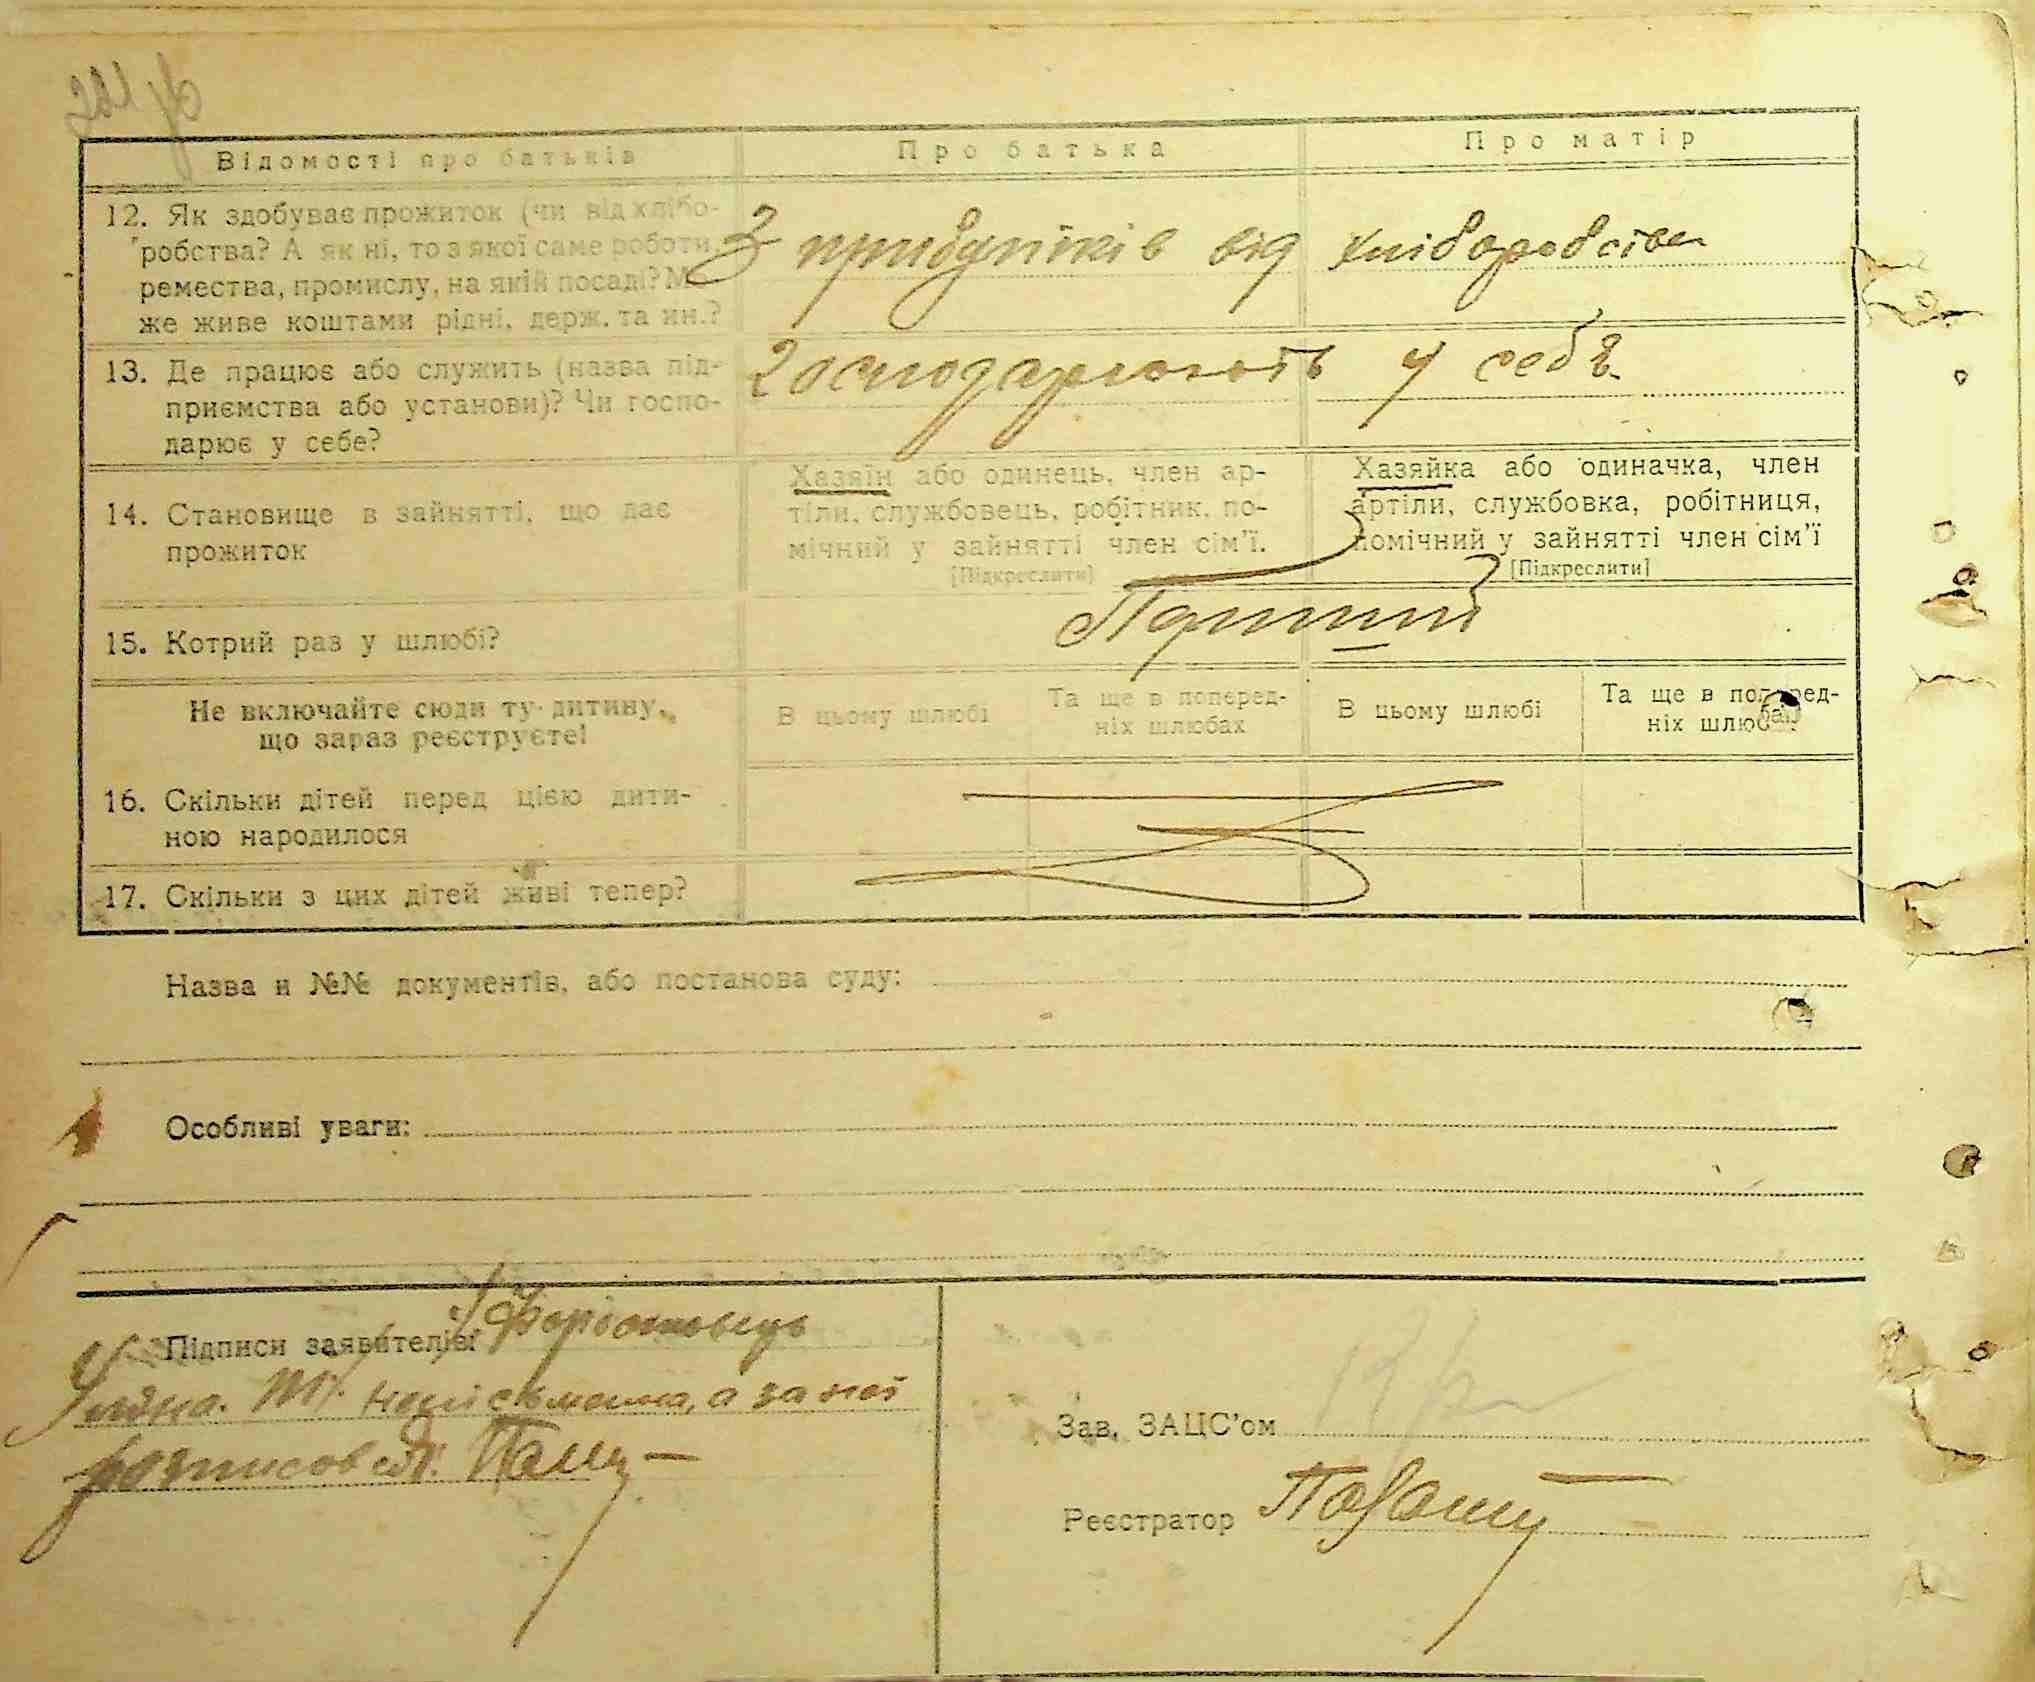 Відомості про батьків
Про батька
Про матір
12. Як здобуває прожиток (чи від хлібо-
робства? А як ні, то з якої саме роботи,
ремества, промислу, на якій посаді? Мо-
же живе коштами рідні, держ. та ин.?
З прибутків від хліборобства
13. Де працює або служить (назва під-
приємства або установи)? Чи госпо-
дарює у себе?
Господарюють у себе
14. Становище в зайнятті, що дає
прожиток
Хазяїн або одинець, член ар-
тіли, службовець, робітник, по-
мічний у зайнятті член сім'ї.
[Підкреслити]
Хазяйка або одиначка, член
артіли, службовка, робітниця,
помічний у зайнятті член сім'ї
[Підкреслити]
15. Котрий раз у шлюбі?
Перший
Не включайте сюди ту дитину,
що зараз реєструєте!
В цьому шлюбі
Та ще в поперед-
ніх шлюбах
В цьому шлюбі
Та ще в поперед-
ніх шлюбах
16. Скільки дітей перед цією дити-
ною народилося
17. Скільки з цих дітей живі тепер?
Назва и №№ документів, або постанова суду:
Особливі уваги:
Підписи заявителів:
неписьменна, а за неї
Зав. ЗАЦС'ом
Реєстратор